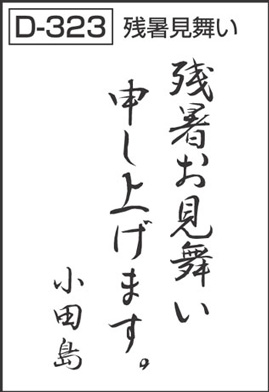 D-323 残暑見舞い
残暑お見舞い
申し上げます。
小田島